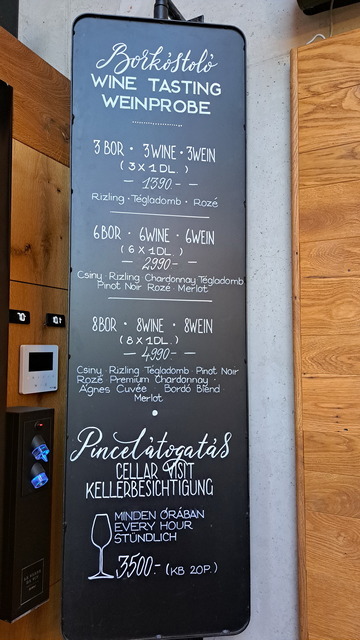 Borkóstoló
WINE TASTING
WEINPROBE
3 BOR • 3 WINE • 3 WEIN
( 3 X 1 DL. )
— 1390- —
Rizling • Tégladomb • Rozé
6 BOR • 6 WINE • 6 WEIN
( 6 X 1 DL. )
— 2990- —
Csiny • Rizling • Chardonnay Tégladomb
Pinot Noir Rozé • Merlot
8 BOR • 8 WINE • 8 WEIN
( 8 X 1 DL. )
— 4990- —
Csiny • Rizling Tégladomb • Pinot Noir
Rozé Premium Chardonnay •
Ágnes Cuvée Bordó Blend
Merlot
Pincelátogatás
CELLAR VISIT
KELLERBESICHTIGUNG
MINDEN ÓRÁBAN
EVERY HOUR
STÜNDLICH
3500.- (KB 20P.)